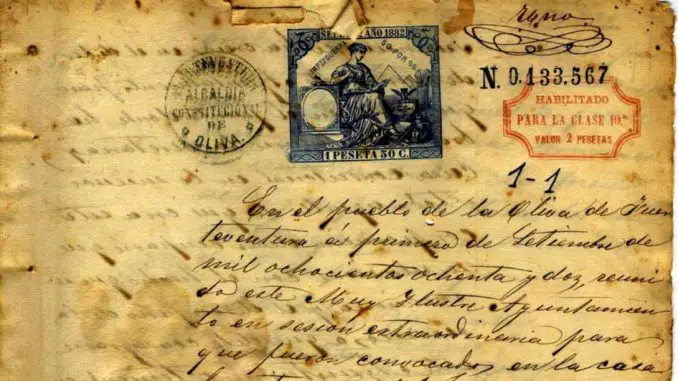 zgno.
N. 0.133.567
HABILITADO
PARA LA CLASE 10.ª
VALOR 2 PESETAS
AÑO 1882
1 PESETA 50 C.
ALCALDIA
CONSTITUCIONAL
DE
OLIVA.
1-1
En el pueblo de la Oliva de Fuer
teventura á primero de Setiembre de
mil ochocientos ochenta y dos, reuni
do este Muy Ilustre Ayuntamien
to en sesión extraordinaria para
que fueron convocados, en la casa